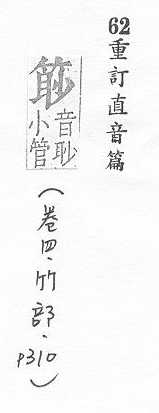 62重訂直音篇
篎
音眇
小管
(卷四、竹部、p310)